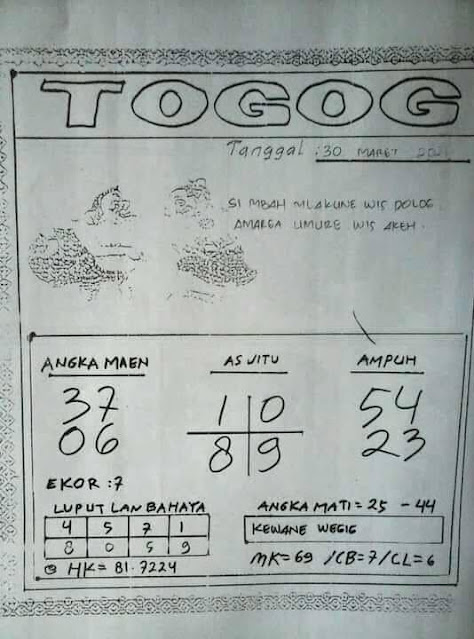 TOGOG
Tanggal : 30 MARET
SI MBAH MLAKUNE WIS DOLOG
AMARGA UMURE WIS AKEH.
ANGKA MAEN
37
06
AS JITU
1 0
8 9
AMPUH
54
23
EKOR : 7
LUPUT LAN BAHAYA
4 5 7 1
8 0 5 9
HK = 81.7224
ANGKA MATI = 25 - 44
KEWANE WEGIG
MK = 69 / CB = 7 / CL = 6